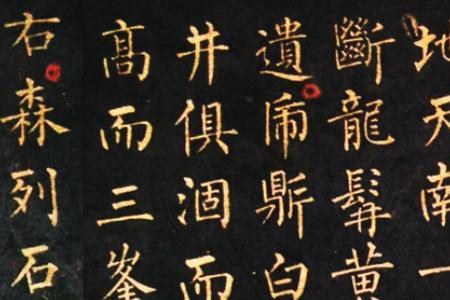 地天南一
斷龍髯黃
遺白
井俱涸而
髙而三峯
右森列石